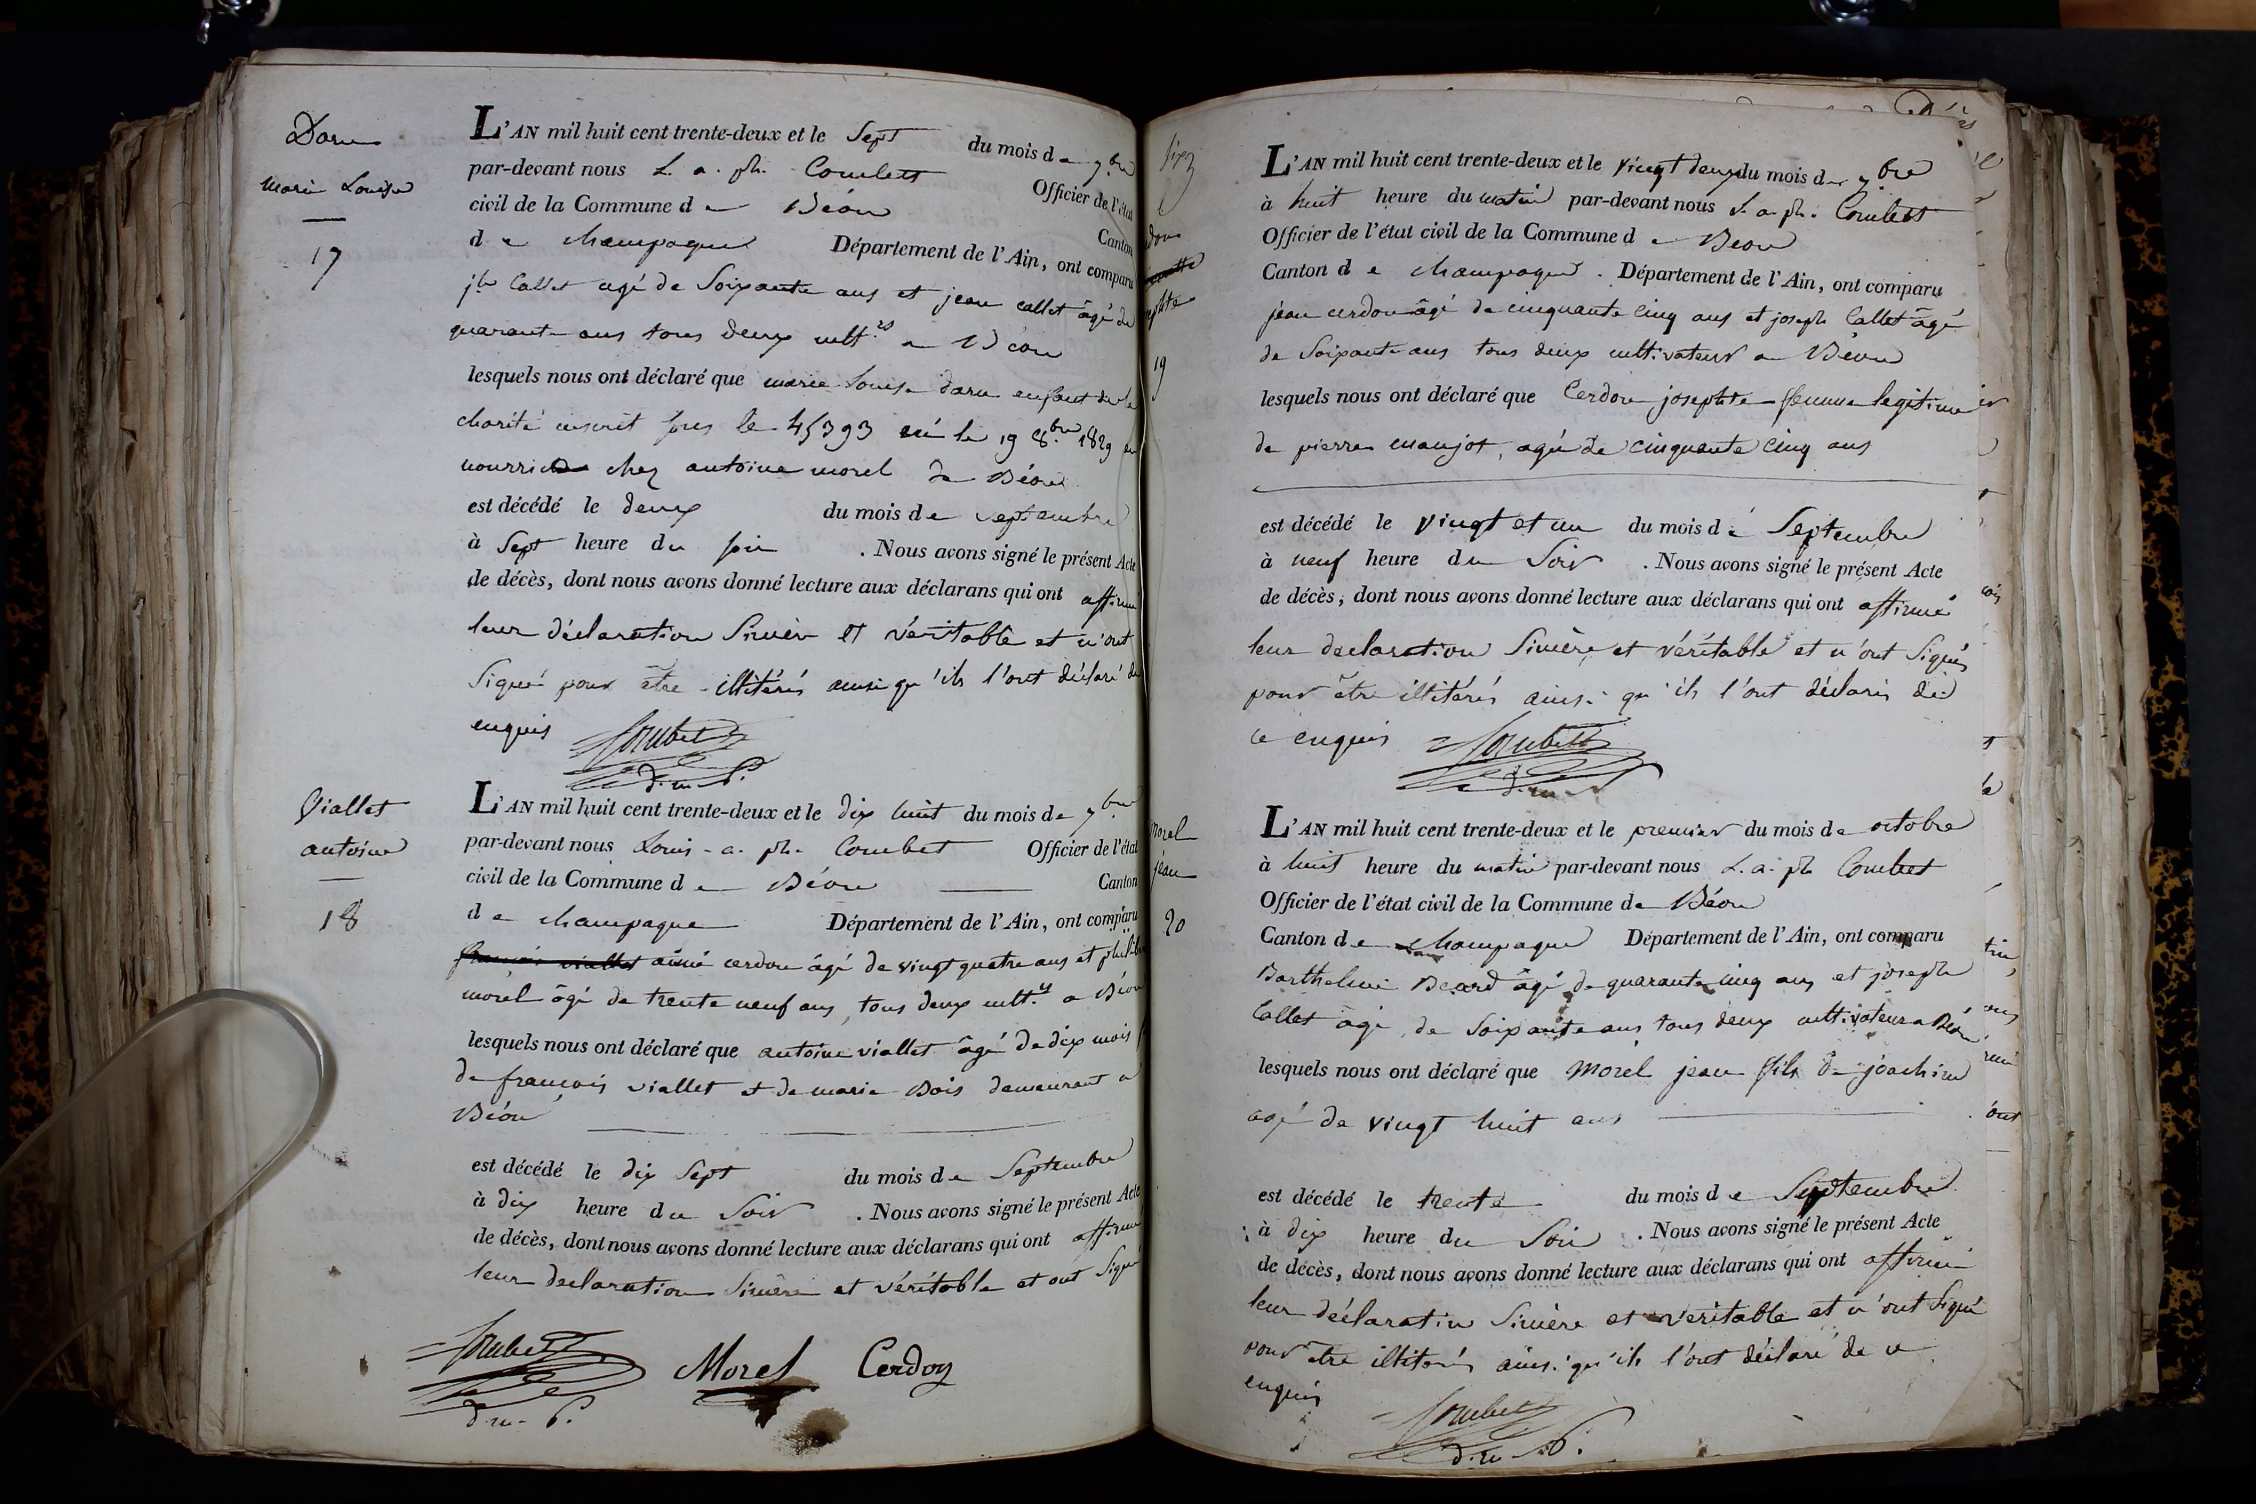 Daru
marie Louise
17
L'AN mil huit cent trente-deux et le Sept du mois de 7.bre
par-devant nous L. a. ph. Combet Officier de l'état
civil de la Commune de Béon Canton
de champagne Département de l'Ain, ont comparu
jh Callet agé de Soixante ans et jean callet âgé de
quarante ans tous deux cult.rs a Béon
lesquels nous ont déclaré que marie Louise daru enfant de la
charité inscrit sous le 45393 né le 19 8.bre 1829 en
nourrice chez antoine morel de Béon
est décédé le deux du mois de septembre
à Sept heure du soir . Nous avons signé le présent Acte
de décès, dont nous avons donné lecture aux déclarans qui ont affirmé
leur déclaration Sincère et véritable et n'ont
Signé pour être illitérés ainsi qu'ils l'ont déclaré de
enquis Combet
d.m.
Viallet
antoine
18
L'AN mil huit cent trente-deux et le dix huit du mois de 7.bre
par-devant nous Louis - a. ph. Combet Officier de l'état
civil de la Commune de Béon Canton
de champagne Département de l'Ain, ont comparu
françois viallet aimé cerdon âgé de vingt quatre ans et philibert
morel âgé de trente neuf ans, tous deux cult.rs a Béon
lesquels nous ont déclaré que antoine viallet âgé de dix mois f
de françois viallet et de marie Bois demeurant a
Béon
est décédé le dix Sept du mois de Septembre
à dix heure du Soir . Nous avons signé le présent Acte
de décès, dont nous avons donné lecture aux déclarans qui ont affirmé
leur declaration Sincère et véritable et ont Signé
Combet Morel Cerdon
d.m.
19
L'AN mil huit cent trente-deux et le vingt deux du mois de 7.bre
à huit heure du matin par-devant nous L. a. ph. Combet
Officier de l'état civil de la Commune de Béon
Canton de champagne . Département de l'Ain, ont comparu
jean cerdon âgé de cinquante cinq ans et joseph Callet âgé
de Soixante ans tous deux cultivateur a Béon
lesquels nous ont déclaré que Cerdon josephte femme legitime
de pierre maujot, agée de cinquante cinq ans
est décédé le vingt et un du mois de Septembre
à neuf heure du Soir . Nous avons signé le présent Acte
de décès, dont nous avons donné lecture aux déclarans qui ont affirmé
leur declaration Sincère et véritable et n'ont Signés
pour être illitérés ainsi qu'ils l'ont déclarés de
ce enquis Combet
d.m.
morel
jean
20
L'AN mil huit cent trente-deux et le premier du mois de octobre
à huit heure du matin par-devant nous L. a. ph Combet
Officier de l'état civil de la Commune de Béon
Canton de champagne Département de l'Ain, ont comparu
Barthelmi Beard âgé de quarante cinq ans et joseph
Callet âgé de Soixante ans tous deux cultivateur a Béon
lesquels nous ont déclaré que Morel jean fils de joachim
agé de vingt huit ans
est décédé le trente du mois de Septembre
à dix heure du Soir . Nous avons signé le présent Acte
de décès, dont nous avons donné lecture aux déclarans qui ont affirmé
leur déclaration Sincère et veritable et n'ont Signé
pour être illitérés ainsi qu'ils l'ont déclaré de ce
enquis Combet
d.m.